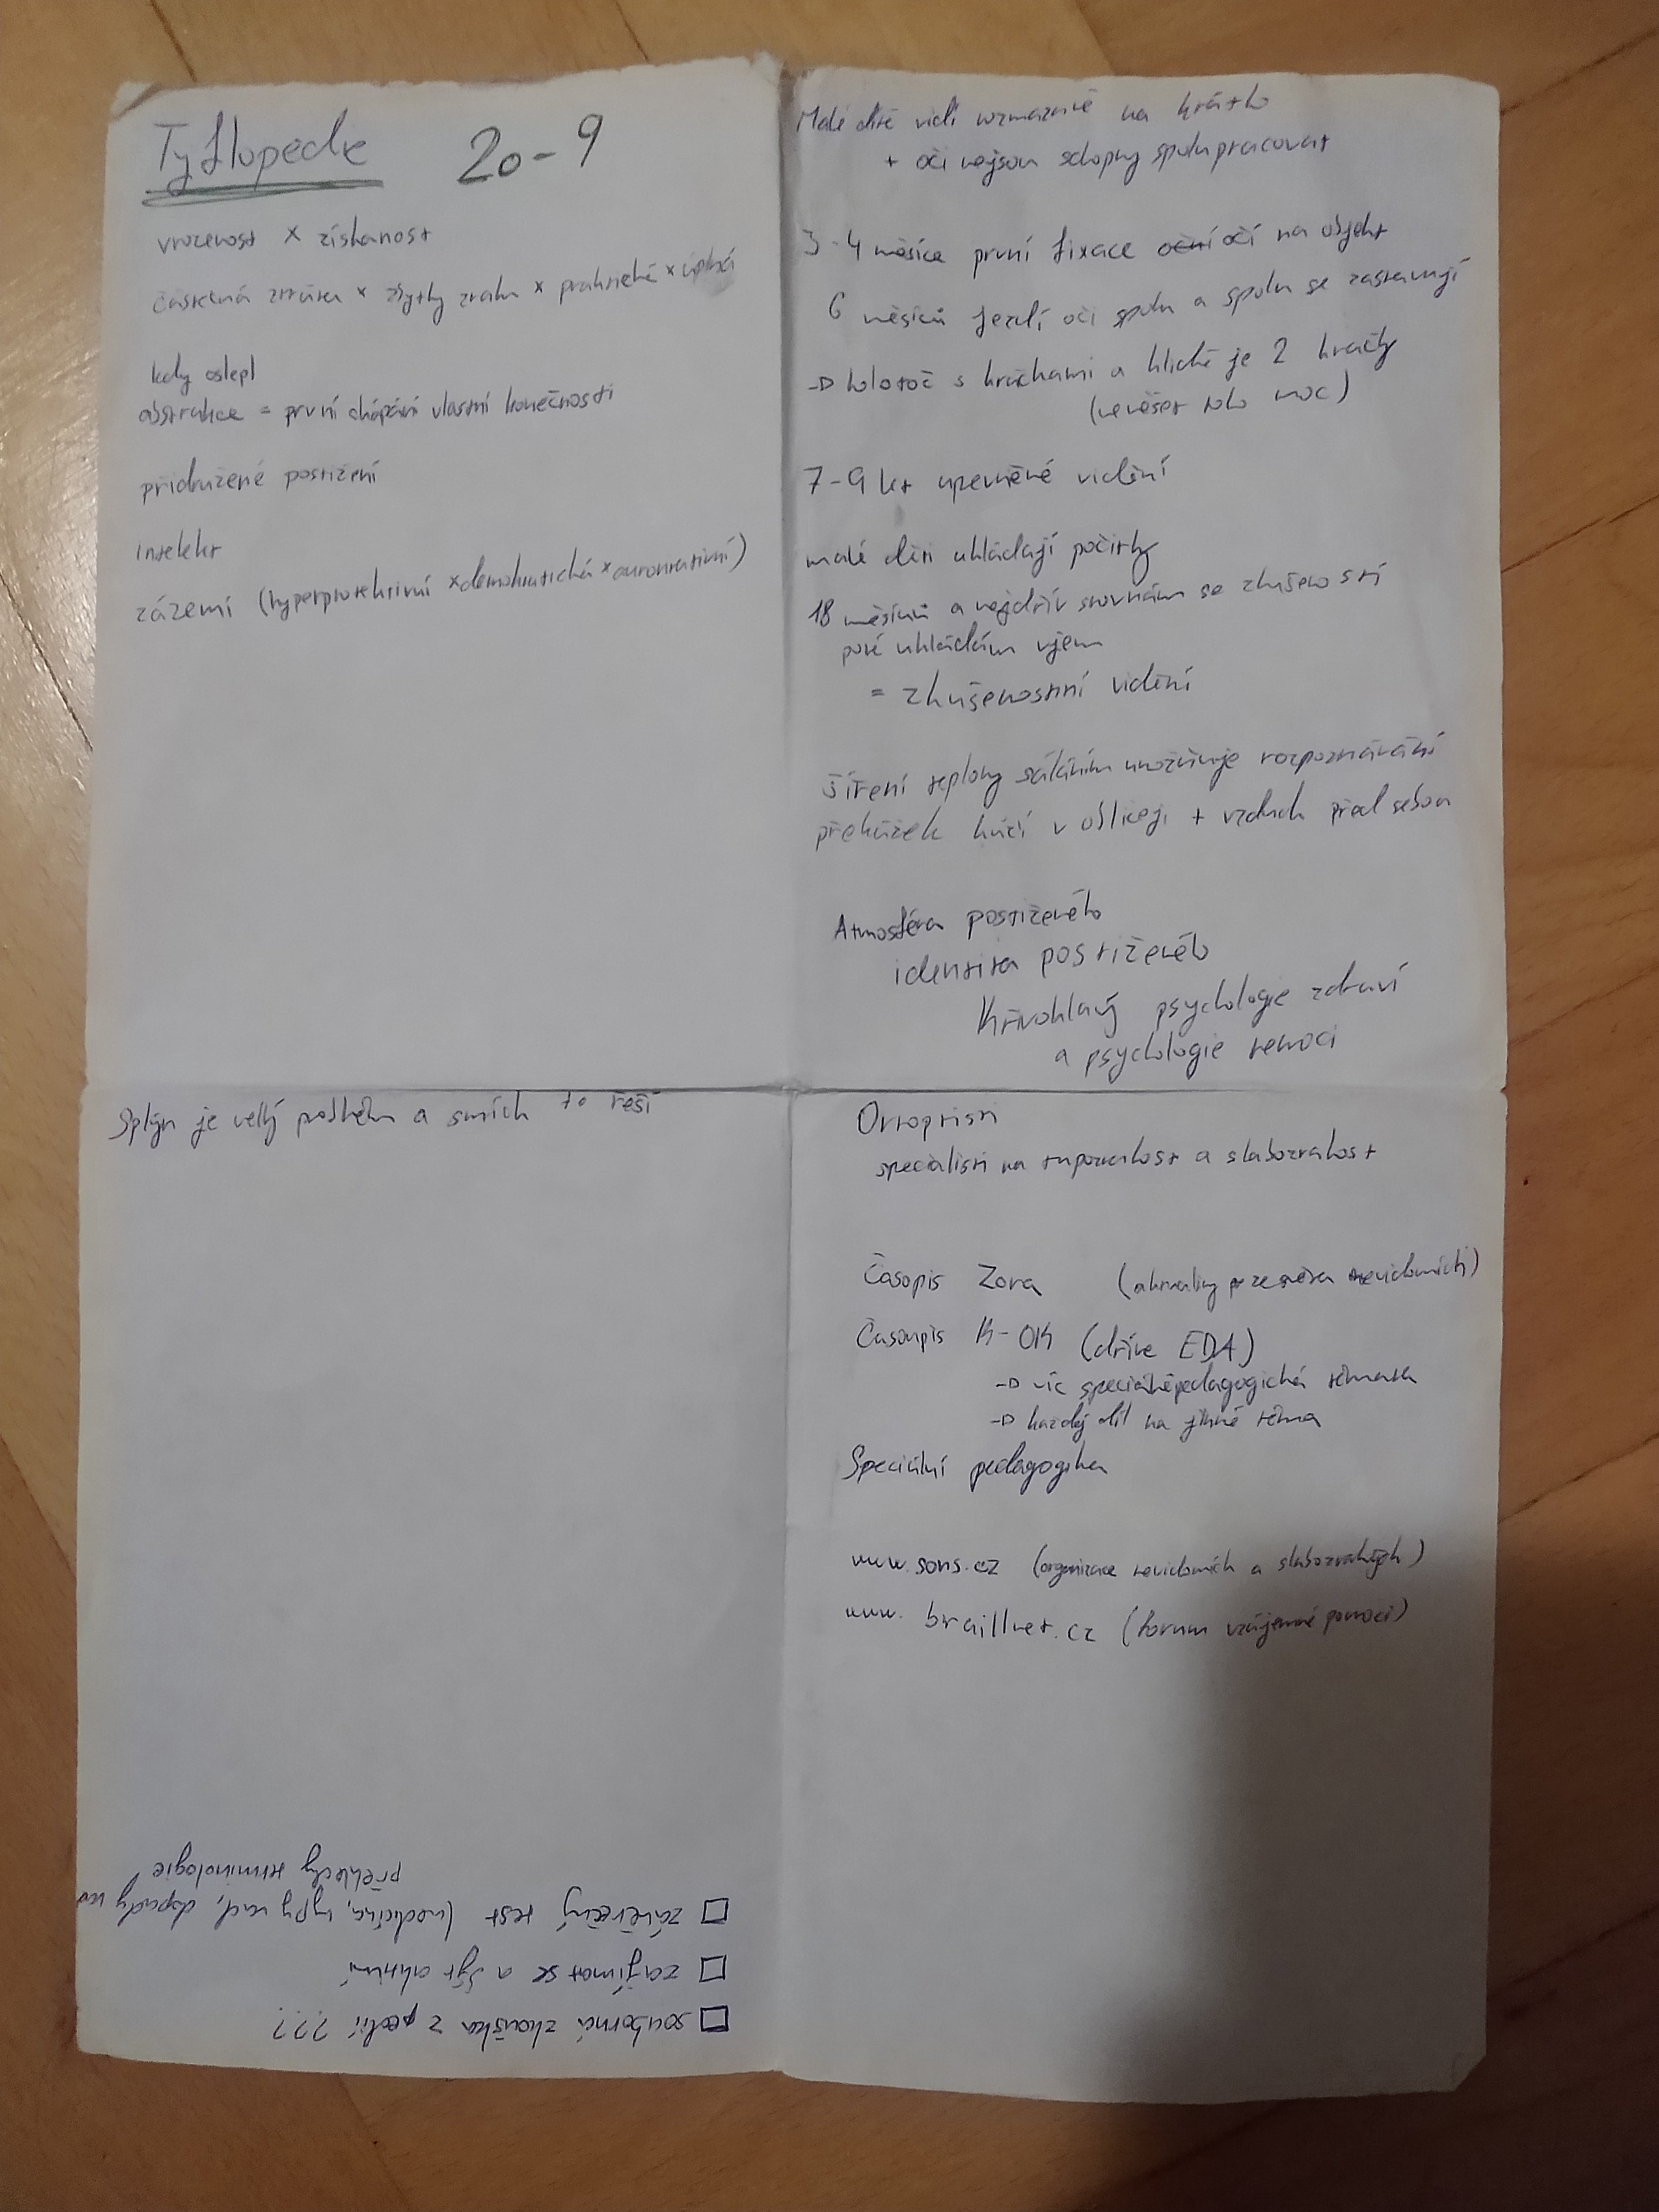 Tyflopedie 20-9
vrozenost x získanost
částečná ztráta x zbytky zraku x praktická x úplná
kdy oslepl
abstrakce = první chápání vlastní konečnosti
přidružené postižení
intelekt
zázemí (hyperprotektivní x demokratická x autoritativní)
Malé dítě vidí rozmazaně na krátko
+ oči nejsou schopny spolupracovat
3-4 měsíce první fixace očí na objekt
6 měsíců jezdí oči spolu a spolu se zastavují
→ kolotoč s hračkami a klidně je 2 hračky
(nevěšet toho moc)
7-9 let upevněné vidění
malé děti ukládají počitky
18 měsíců a nejdřív srovnám se zkušeností
poté ukládám vjem
= zkušenostní vidění
šíření teploty sáláním umožňuje rozpoznávání
překážek kůží v obličeji + vzduch před sebou
Atmosféra postiženého
identita postiženého
Křivohlavý psychologie zdraví
a psychologie nemoci
Splín je velký problém a smích to řeší
Ortoptisti
specialisti na tupozrakost a slabozrakost
Časopis Zora (aktuality ze světa nevidomích)
Časopis K-OK (dříve EDA)
→ víc speciálněpedagogická témata
→ každý díl na jiné téma
Speciální pedagogika
www.sons.cz (organizace nevidomích a slabozrakých)
www.braillnet.cz (forum vzájemné pomoci)
□ souborná zkouška z pedií ???
□ zajímat se a být aktivní
□ závěrečný test (medicína, typy vad, dopady na
překlady terminologie